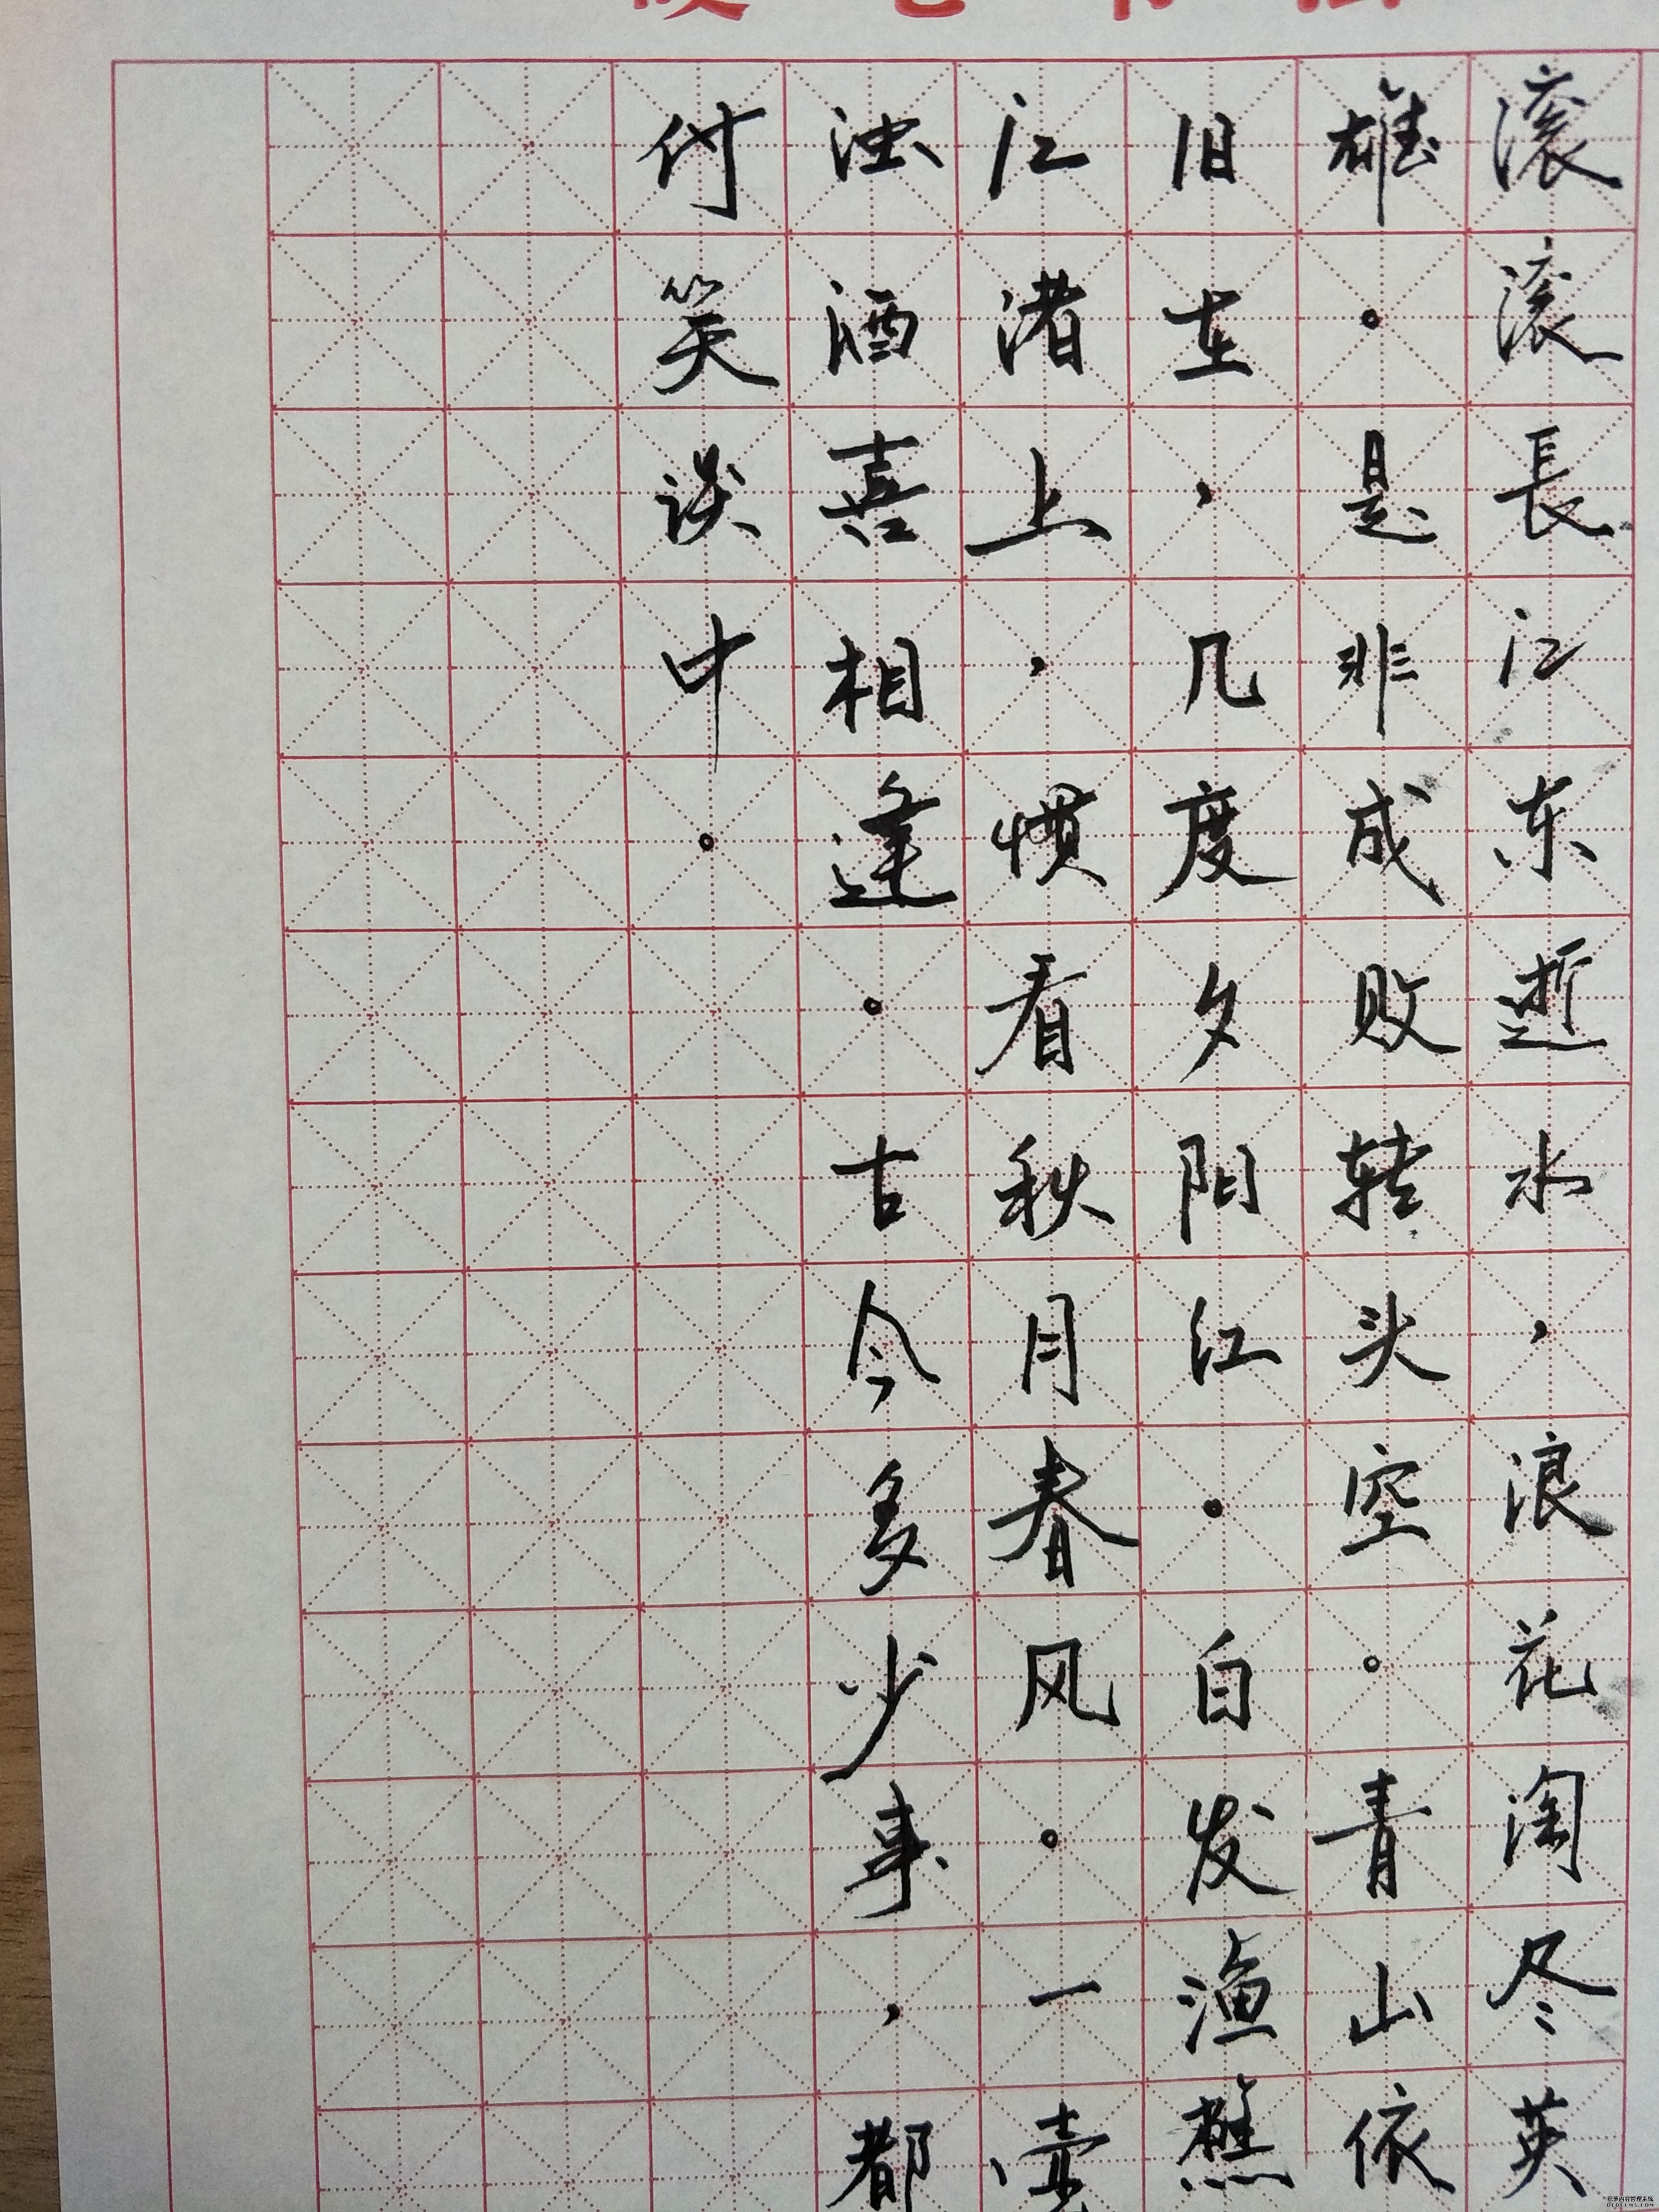 滚滚長江东逝水，浪花淘尽英
雄。是非成败转头空。青山依
旧在，几度夕阳江。白发渔樵
江渚上，惯看秋月春风。一壶
浊酒喜相逢。古今多少事，都
付笑谈中。
织梦内容管理系统
DEDECMS.COM